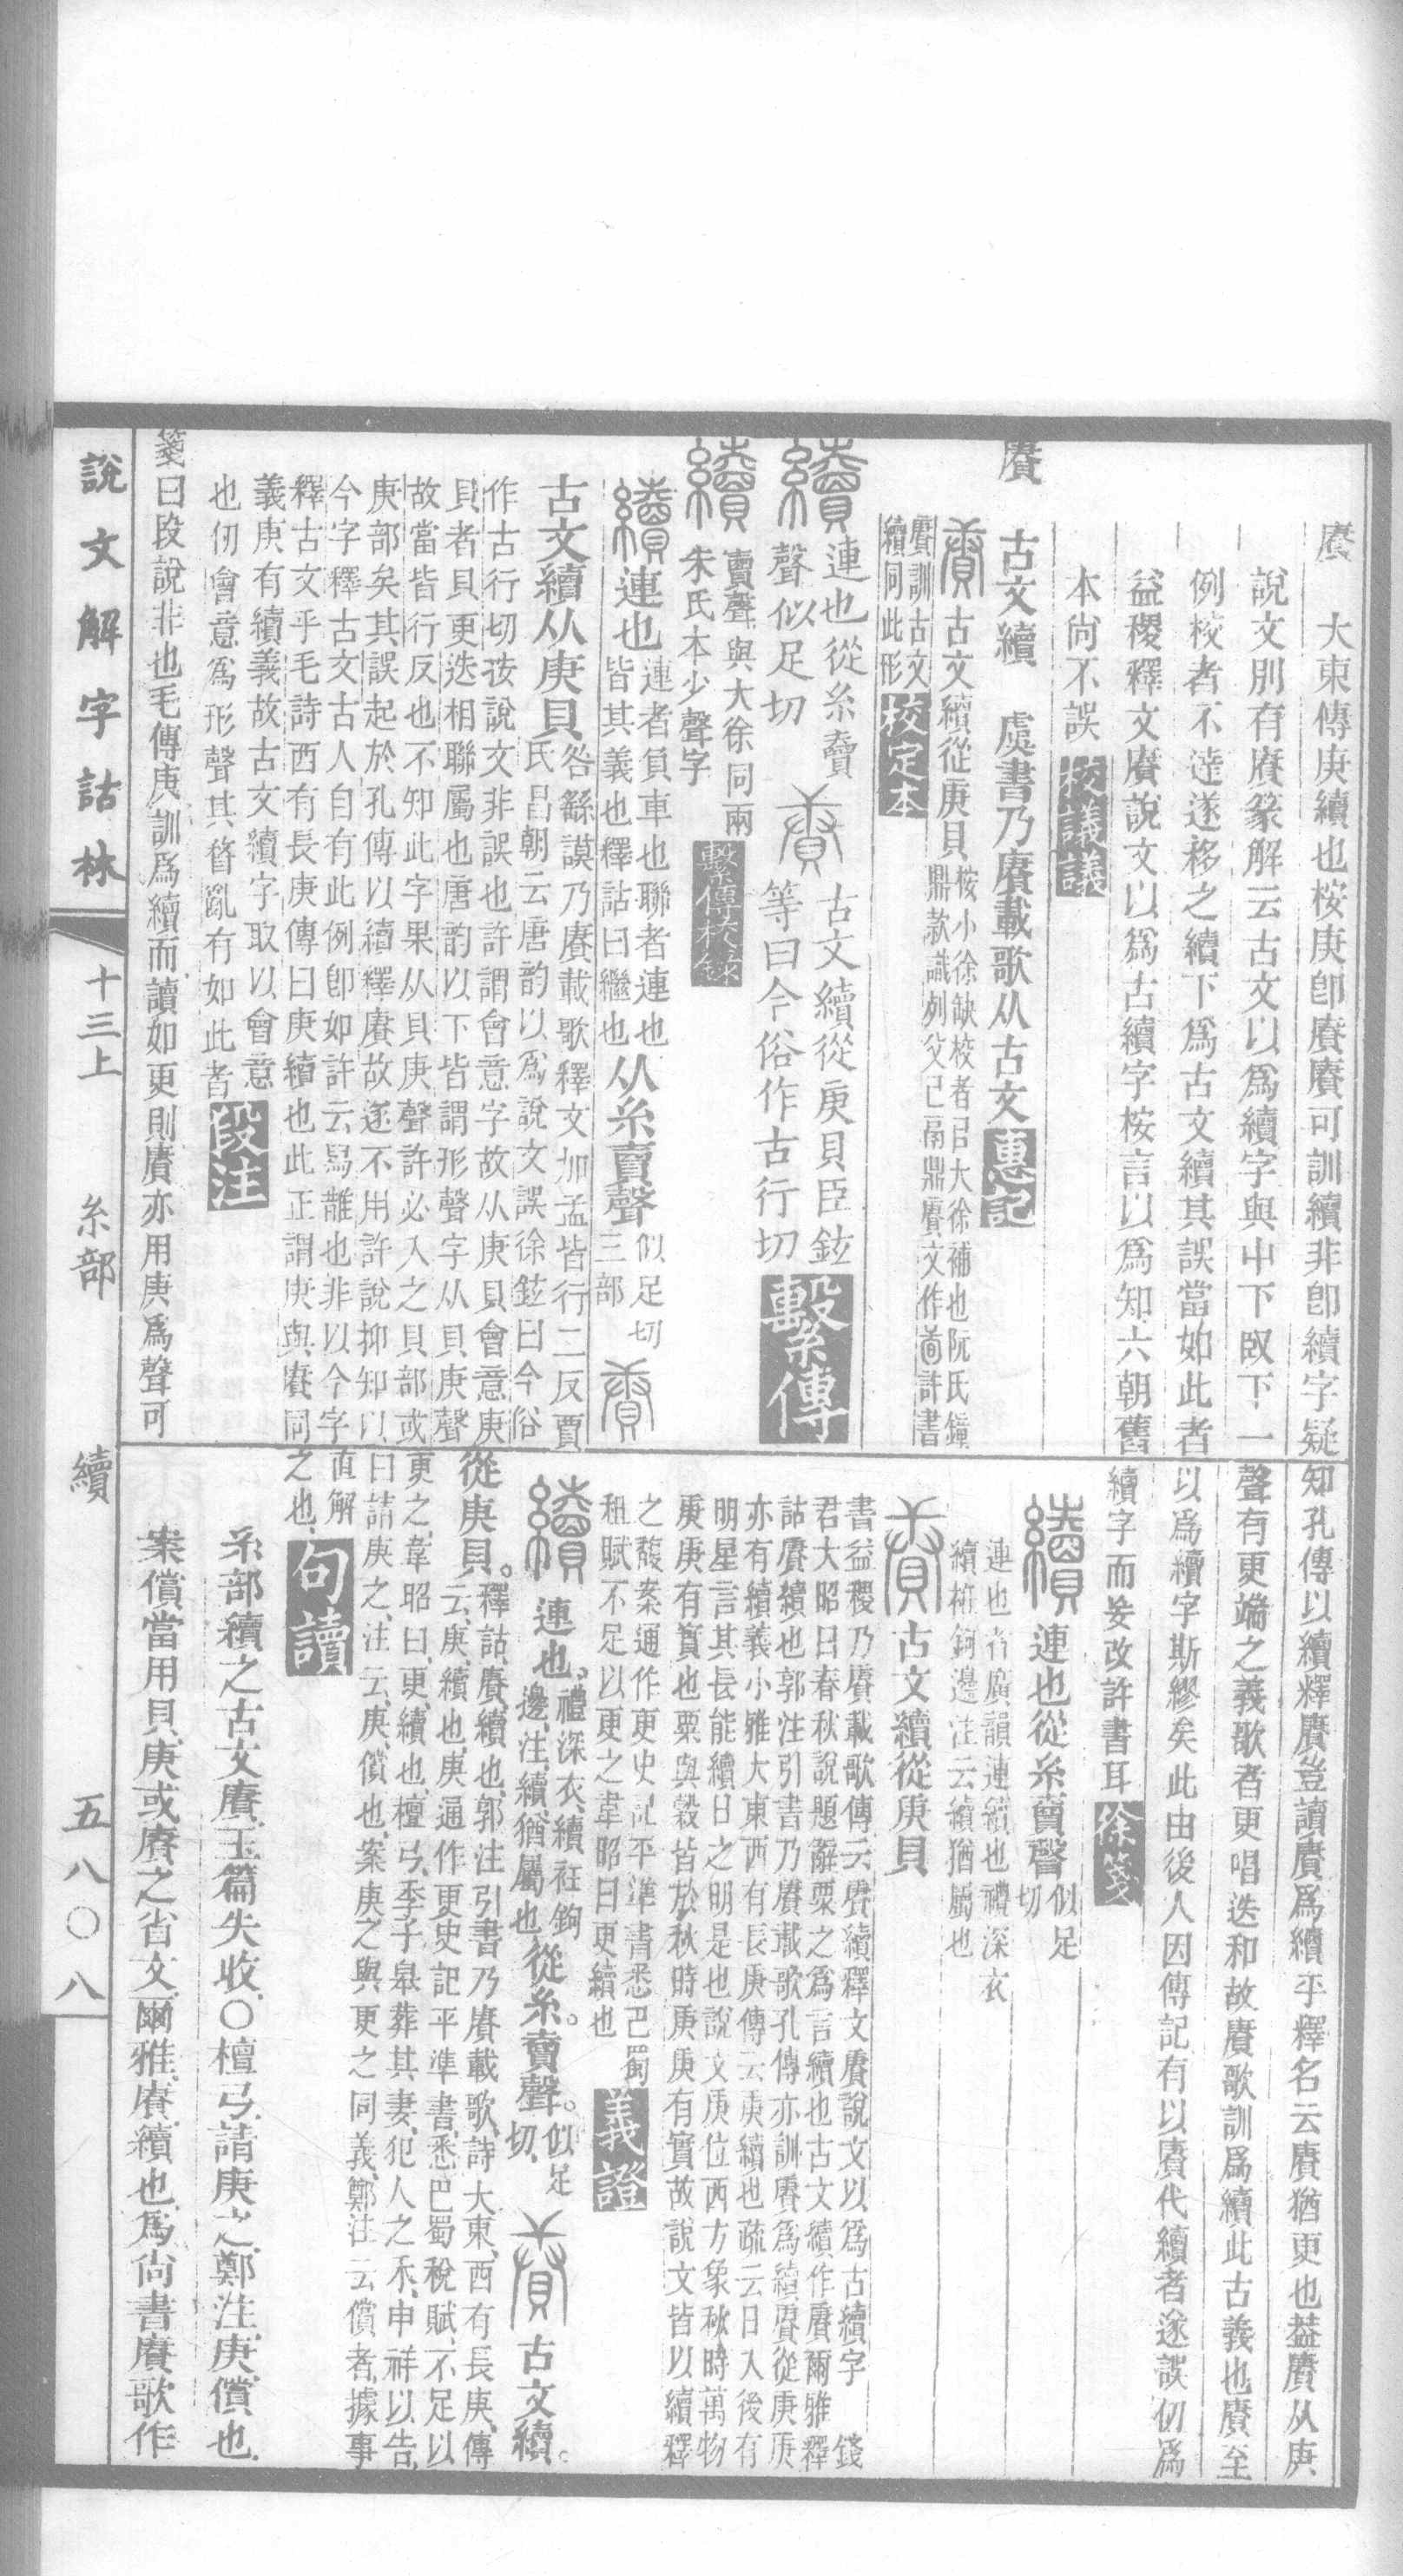 賡
大東傳庚續也桉庚卽賡賡可訓續非卽續字疑
說文別有賡篆解云古文以爲續字與屮下臤下一
例校者不達遂移之續下爲古文續其誤當如此者
益稷釋文賡說文以爲古續字桉言以爲知六朝舊
本尚不誤 校議議
賡 古文續 虞書乃賡載歌从古文 惠記
賡 古文續從庚貝 桉小徐缺校者㠯大徐補也阮氏鐘
鼎款識列父已鬲鼎賡文作 許書
賡訓古文
續同此形 校定本
續 連也從糸賣
聲似足切 賡 古文續從庚貝臣鉉
等曰今俗作古行切 繫傳
續 賣聲與大徐同兩
朱氏本少聲字 繫傳校錄
續 連也 連者負車也聯者連也
皆其義也釋詁曰繼也 从糸賣聲 似足切
三部 賡
古文續从庚貝 咎繇謨乃賡載歌釋文加孟皆行二反賈
氏昌朝云唐韵以爲說文誤徐鉉曰今俗
作古行切按說文非誤也許謂會意字故从庚貝會意庚
貝者貝更迭相聯屬也唐韵以下皆謂形聲字从貝庚聲
故當皆行反也不知此字果从貝庚聲許必入之貝部或
庚部矣其誤起於孔傳以續釋賡故遂不用許說抑知以
今字釋古文古人自有此例卽如許云舄誰也非以今字
釋古文乎毛詩西有長庚傳曰庚續也此正謂庚與賡同
義庚有續義故古文續字取以會意
也仞會意爲形聲其瞀亂有如此者 段注
箋曰段說非也毛傳庚訓爲續而讀如更則賡亦用庚爲聲可
知孔傳以續釋賡豈讀賡爲續乎釋名云賡猶更也葢賡从庚
聲有更端之義歌者更唱迭和故賡歌訓爲續此古義也賡至
以爲續字斯繆矣此由後人因傳記有以賡代續者遂誤仞爲
續字而妄改許書耳 徐箋
續 連也從糸賣聲 似足
切
連也者廣韻連續也禮深衣
續衽鉤邊注云續猶屬也
賡 古文續從庚貝
書益稷乃賡載歌傳云賡續釋文賡說文以爲古續字 錢
君大昭曰春秋說題辭粟之爲言續也古文續作賡爾雅釋
詁賡續也郭注引書乃賡載歌孔傳亦訓賡爲續賡從庚庚
亦有續義小雅大東西有長庚傳云庚續也疏云日入後有
明星言其長能續日之明是也說文庚位西方象秋時萬物
庚庚有實也粟與穀皆於秋時庚庚有實故說文皆以續釋
之馥案通作更史記平準書悉巴蜀
租賦不足以更之韋昭曰更續也 義證
續 連也。 禮深衣、續衽鉤
邊、注、續、猶屬也、 從糸。賣聲。 似足
切、 賡 古文續。
從庚貝。 釋詁、賡、續也、郭注引書乃賡載歌、詩大東、西有長庚、傳
云、庚、續也、庚通作更、史記平準書、悉巴蜀稅賦、不足以
更之、韋昭曰、更、續也、檀弓、季子皋葬其妻、犯人之禾、申祥以告、
曰、請庚之、注云、庚、償也、案庚之與更之同義、鄭注云償者、據事
直解
之也、 句讀
糸部續之古文賡、玉篇失收、○檀弓、請庚之、鄭注、庚、償也、
案償當用貝、庚或賡之省文、爾雅、賡、續也、爲尚書賡歌作
說文解字詁林 十三上 糸部 續 五八〇八